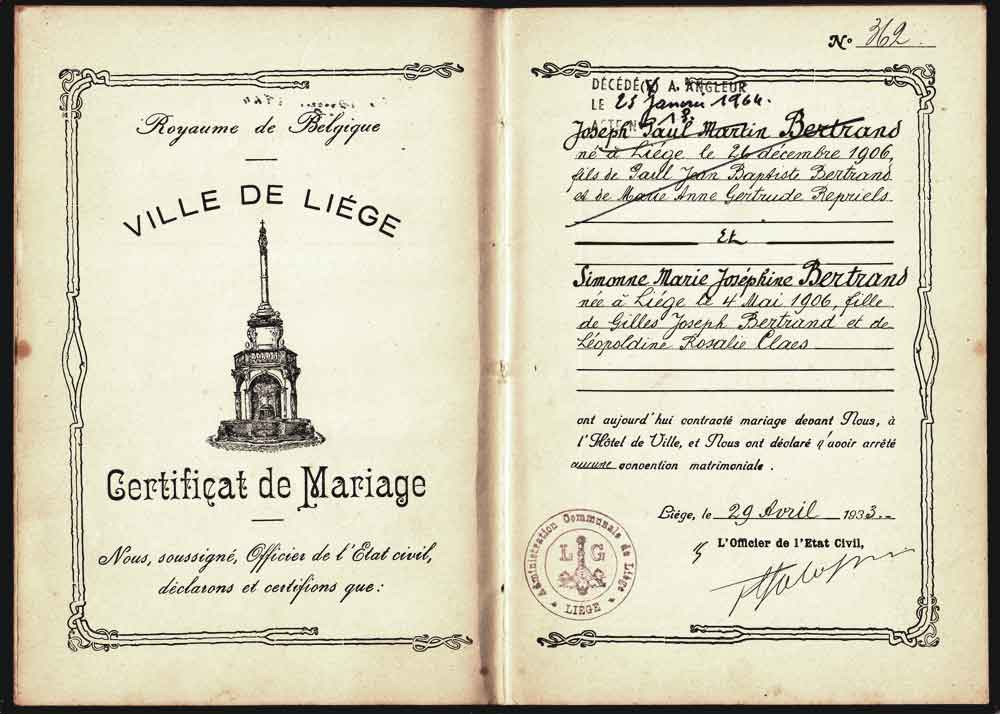 Royaume de Belgique
VILLE DE LIÉGE
Certificat de Mariage
Nous, soussigné, Officier de l'Etat civil,
déclarons et certifions que:
N° 362
DÉCÉDÉ(E) A. ANGLEUR
LE 25 Janvier 1964.
ACTE N° 13.
Joseph Paul Martin Bertrand
né à Liége le 26 décembre 1906,
fils de Paul Jean Baptiste Bertrand
et de Marie Anne Gertrude Repriels
Et
Simonne Marie Joséphine Bertrand
née à Liége le 4 Mai 1906, fille
de Gilles Joseph Bertrand et de
Léopoldine Rosalie Claes
ont aujourd'hui contracté mariage devant Nous, à
l'Hôtel de Ville, et Nous ont déclaré n'avoir arrêté
aucune convention matrimoniale.
Liége, le 29 Avril 1933.
L'Officier de l'Etat Civil,
Administration Communale de Liége
L G
LIÉGE